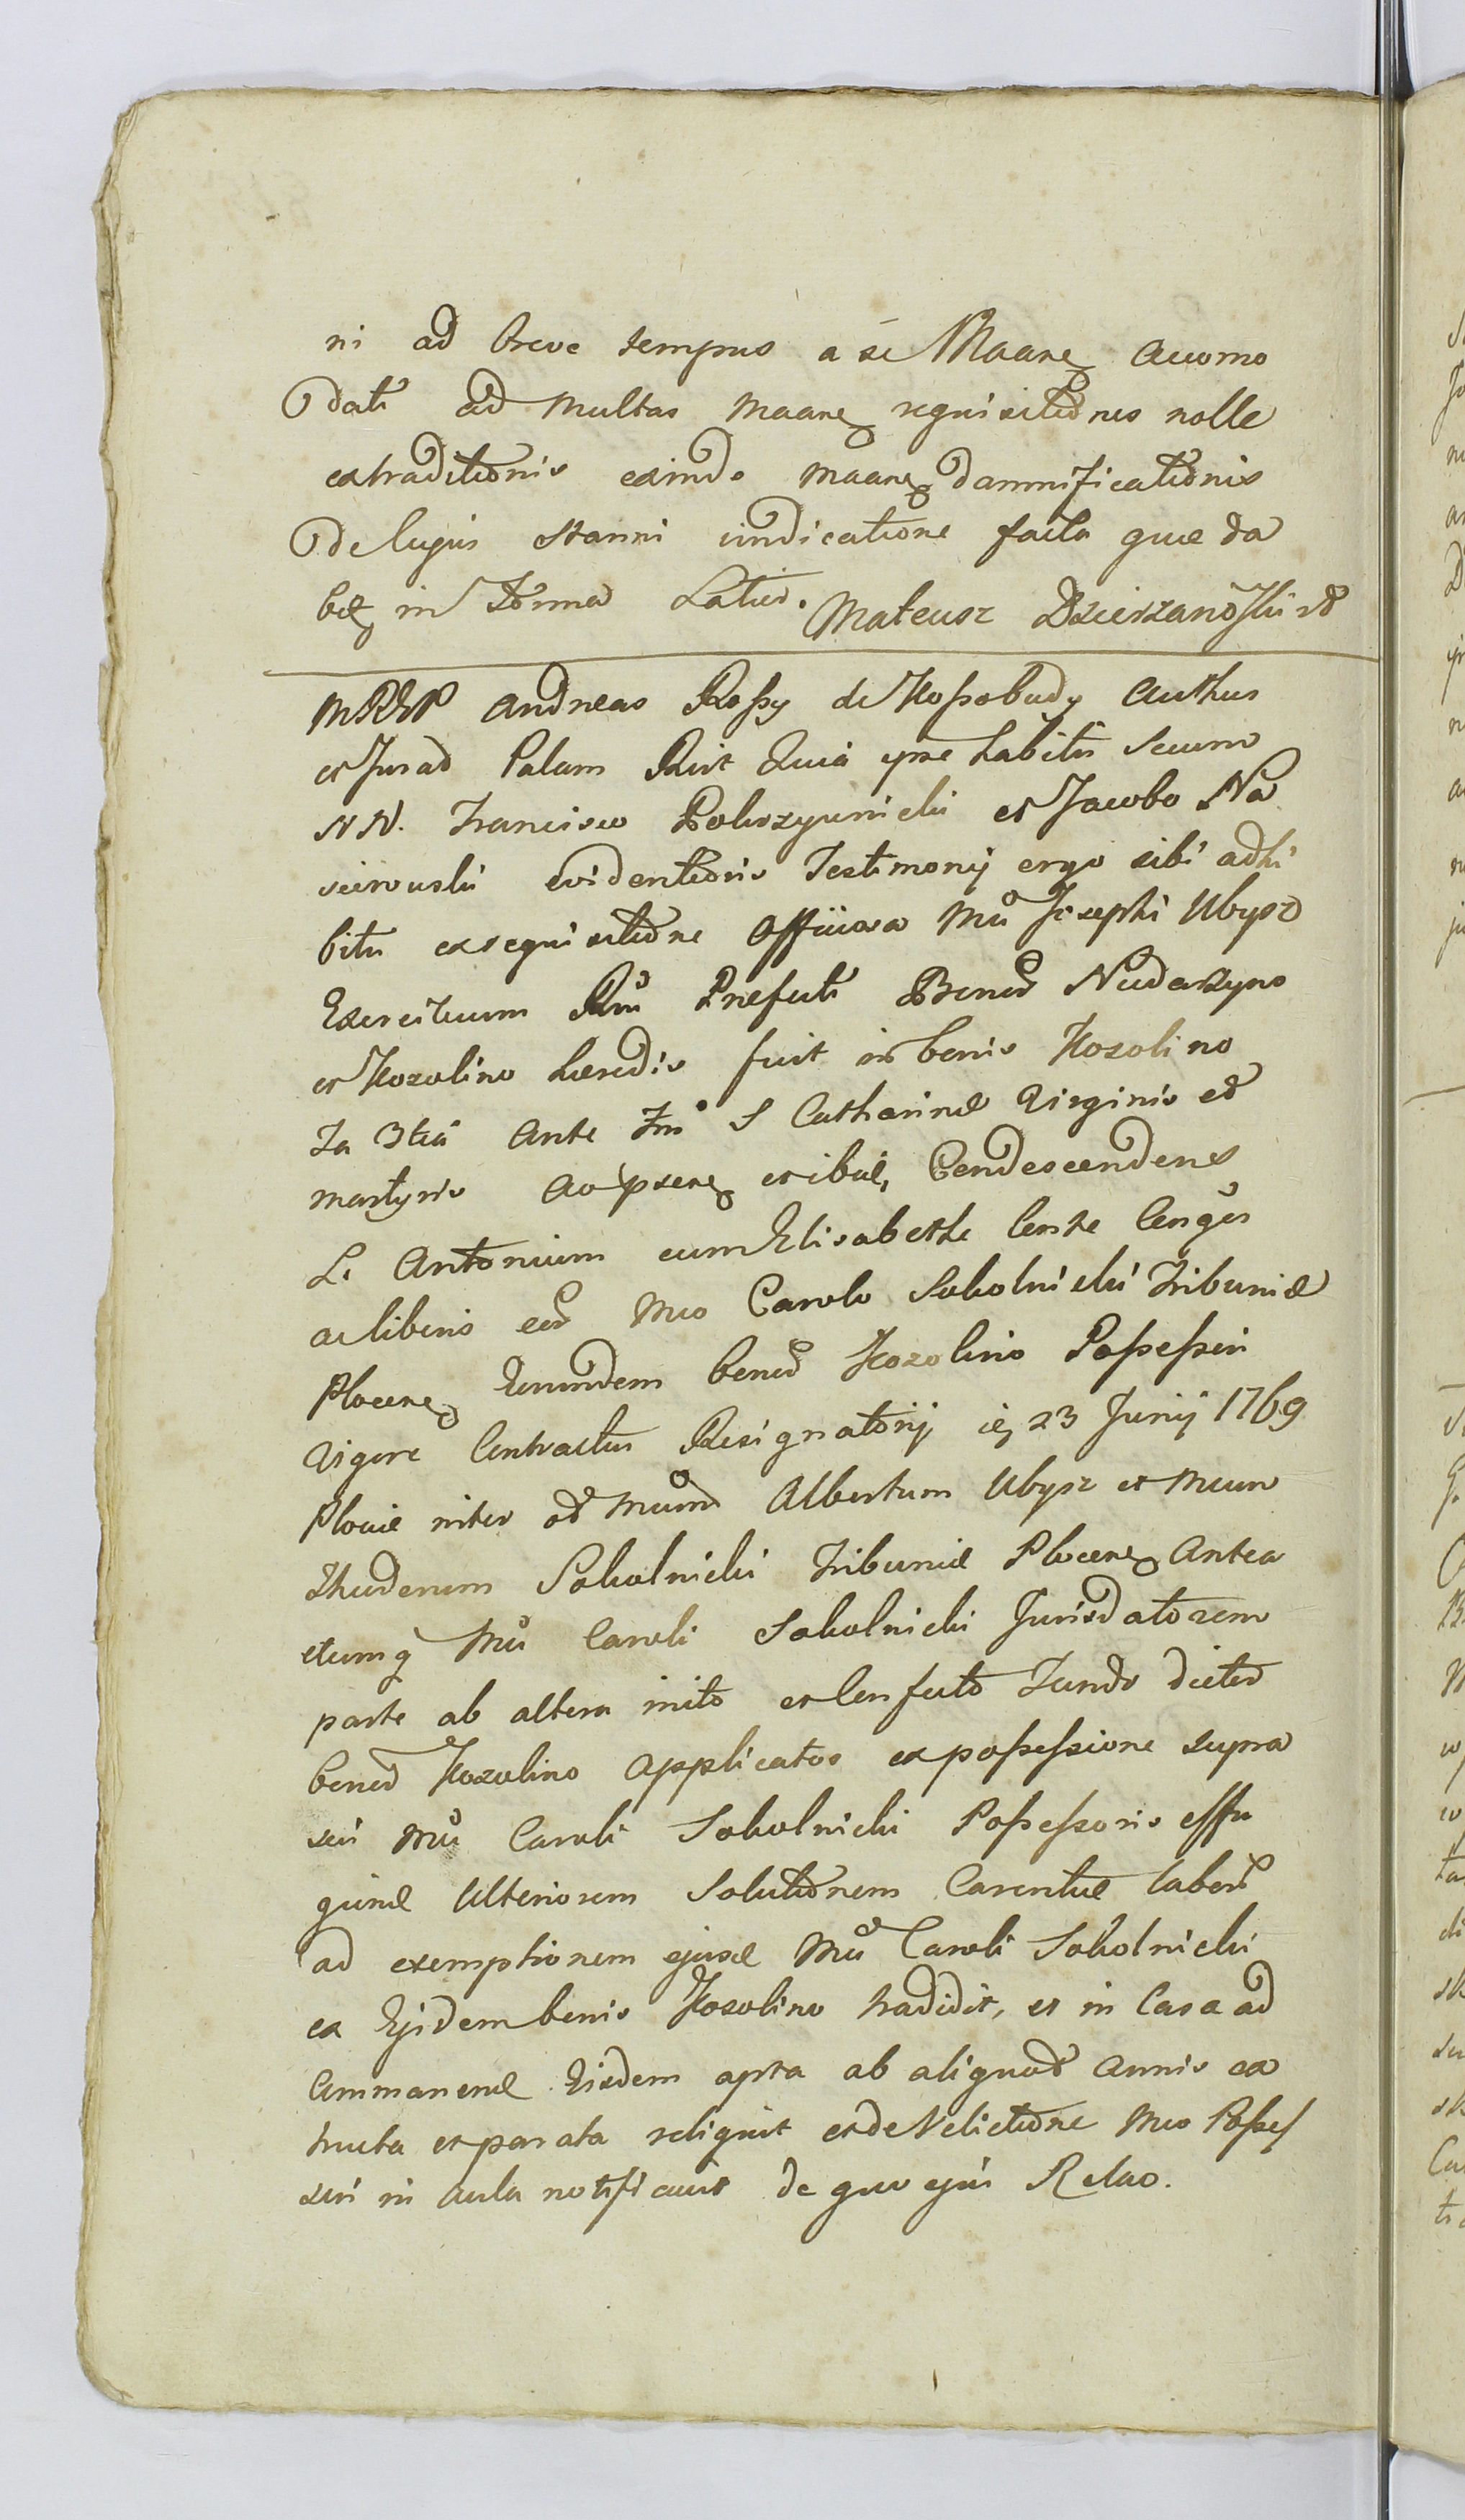 ni ad breve tempus a se Maare accomo
dati ad multas Maare requisitiones nolle
extraditionis exinde Maare damnificationis
de cujus stanni vindicatione facta quae da
bit in Termino Latius. Mateusz Dzierzanoski
MRGP Andreas Rossy de Kossobudy Authus
et Jurad Palam Rcit Quia ipse habitis Secum
NN. Francisco Pokrzywnicki et Jacobo Na
sierouski evidentioris Testimonij ergo sibi adhi
bitis ex requisitione Officiosa Mci Josephi Ubysz
Exercituum Rni Praefecti Bonor Nudarzyno
et Kozolino haeredis fuit in bonis Kozolino
Fa 3tia Ante Fm S Catharinae Virginis et
martyris Ao psene et ibid, Condescendens
L. Antonium cum Elisabetha Cente Conger
ac liberis eor Mco Carolo Sokolnicki Tribunid
Plocene Eorundem bonor Kozolino Possessori
Vigore Contractus Resignatorij ie 23 Junij 1769
Plociae inter od Mcum Albertum Ubysz et Mcum
Thuderum Sokolnicki Tribunid Plocene Antea
etumq Mci Caroli Sokolnicki Jurisdatorem
parte ab altera inito et Confecto Fundo dictor
bonor Kozolino Applicatos ex possessione supra
sui Mci Caroli Sokolnicki Possessoris effu
giend Ulteriorem Solutionem Carentiae labor
ad exemptionem ejusd Mci Caroli Sokolnicki
ex Ejsdem bonis Kozolino tradidit, et in Casa ad
Commanend Eisdem apta ab aliquod annis ex
tructa et parata reliquit et de Relictione Mco Posses
sori in aula notificavit de quo ejus Relao.